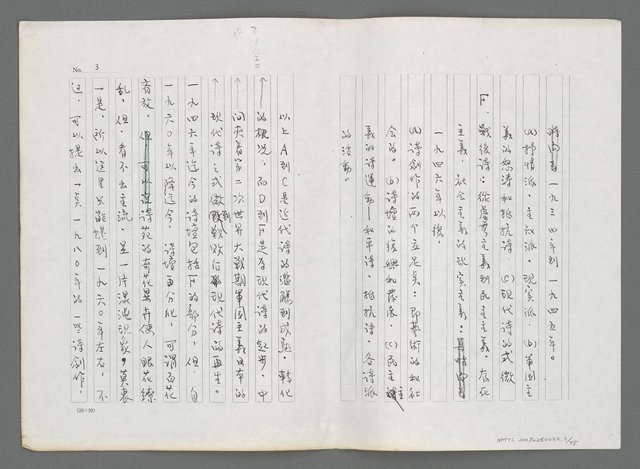 時間為一九三四年到一九四五年。
(a)抒情派、主知派、現實派。(b)軍國主
義的怒濤和抵抗詩 (C)現代詩的式微
F、戰後詩：從虛無主義到民主主義、存在
主義、社會主義的現實主義。
一九四六年以後，
(a)詩創作的兩个立足点：即藝術的和社
會的。(b)詩壇的復興和發展。(C)民主主
義的詩運動—和平詩、抵抗詩、各詩派
的活動。
No. 3
以上A到C是近代詩的濫觴到成熟、轉化
的概況，而D到F是為現代詩的起步、中
间夾着第二次世界大戰期軍國主義日本的
現代詩之式微到戰敗后現代詩的再生。
一九四六年迄今的詩壇包括F的部分，但，自
一九六〇年以降迄今，詩壇再分化，可謂百花
齊放，但，可以說詩苑的奇花異卉使人眼花繚
乱，但，看不出主流，呈一片混沌現象。莫衷
一是，所以這里只能談到一九六〇年左右，不
过，可以提出一点一九八〇年的一些詩創作，
(20×20)
NMTL 20070280032, 3/45